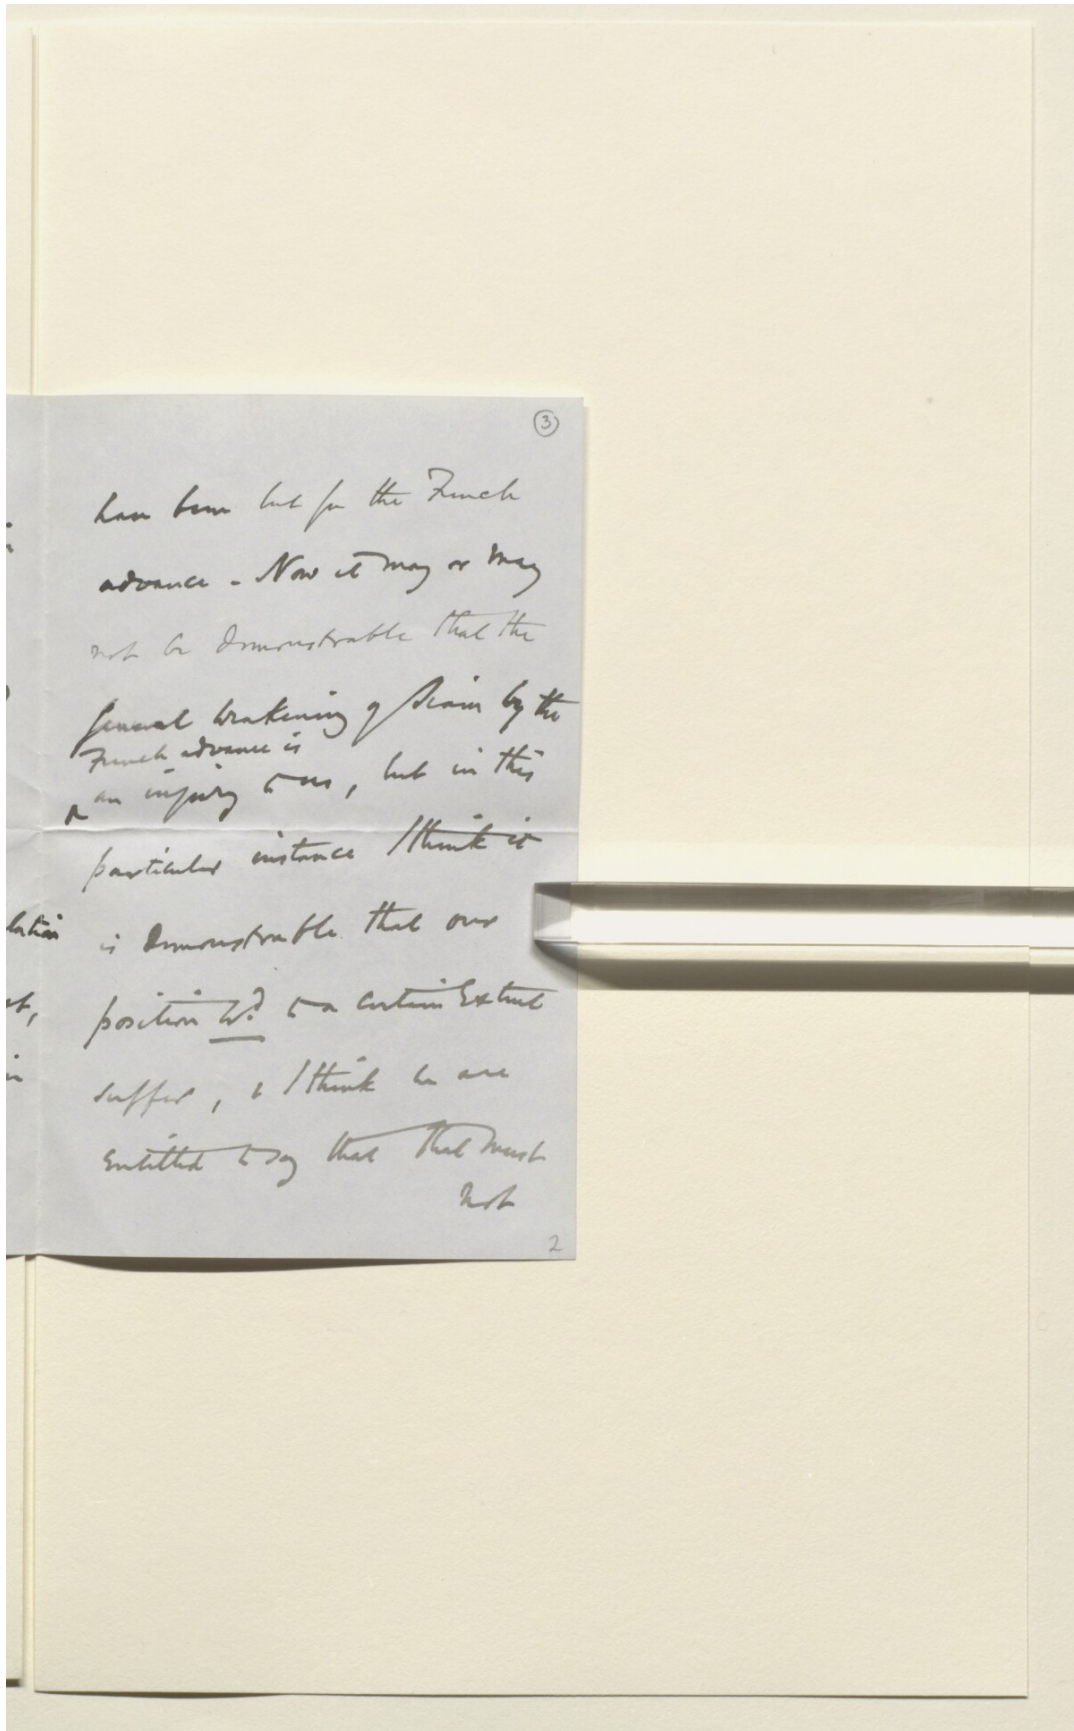 3
have been but for the French
advance - Now it may or may
not be demonstrable that the
general weakening of Siam by the
French advance is
an injury to us, but in this
particular instance I think it
is demonstrable that our
position wd. to a certain extent
suffer, & I think we are
entitled to say that that must
not
2